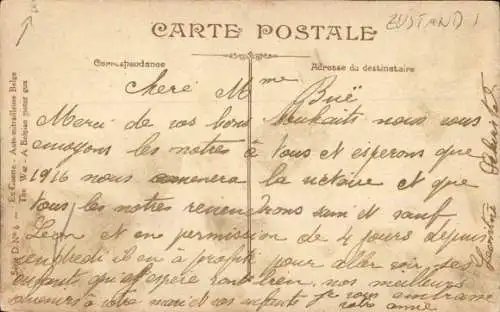 CARTE POSTALE
ZUSTAND 1
Correspondance
Adresse du destinataire
Chere Mme Buë
Merci de vos bons souhaits nous vous
envoyons les nôtres à tous et esperons que
1916 nous amenera la victoire et que
tous les notres reviendrons sain et sauf
Leon et en permission de 4 jours depuis
vendredi il en à profité pour aller voir ses
enfants qui espère vont bien. nos meilleurs
à votre mari et vos enfants je vous embrasse
votre amie
Série D No 6 — En Guerre - Auto-mitrailleuse Belge
The War - A Belgian motor gun